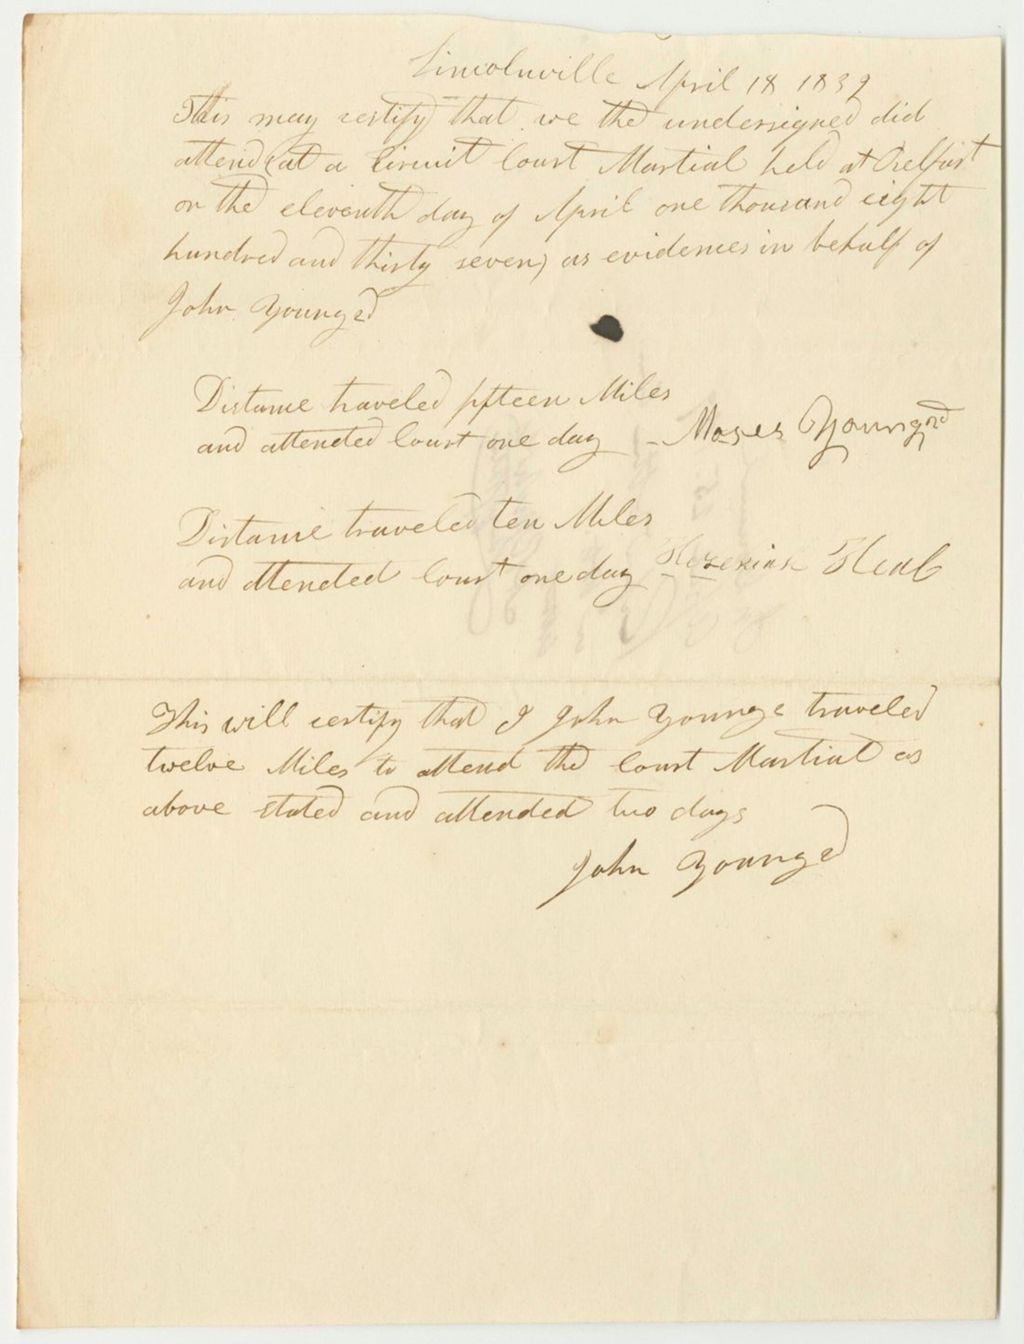 Lincolnville April 18 1839
This may certify that we the undersigned did
attend at a Circuit Court Martial held at Belfast
on the eleventh day of April one thousand eight
hundred and thirty seven, as evidences in behalf of
John Young 2d
Distance traveled fifteen Miles
and attended Court one day - Moses Young 2nd
Distance traveled ten Miles
and attended Court one day Hezekiah Heal
This will certify that I John Young 2 traveled
twelve Miles to attend the Court Martial as
above stated and attended two days
John Young 2d